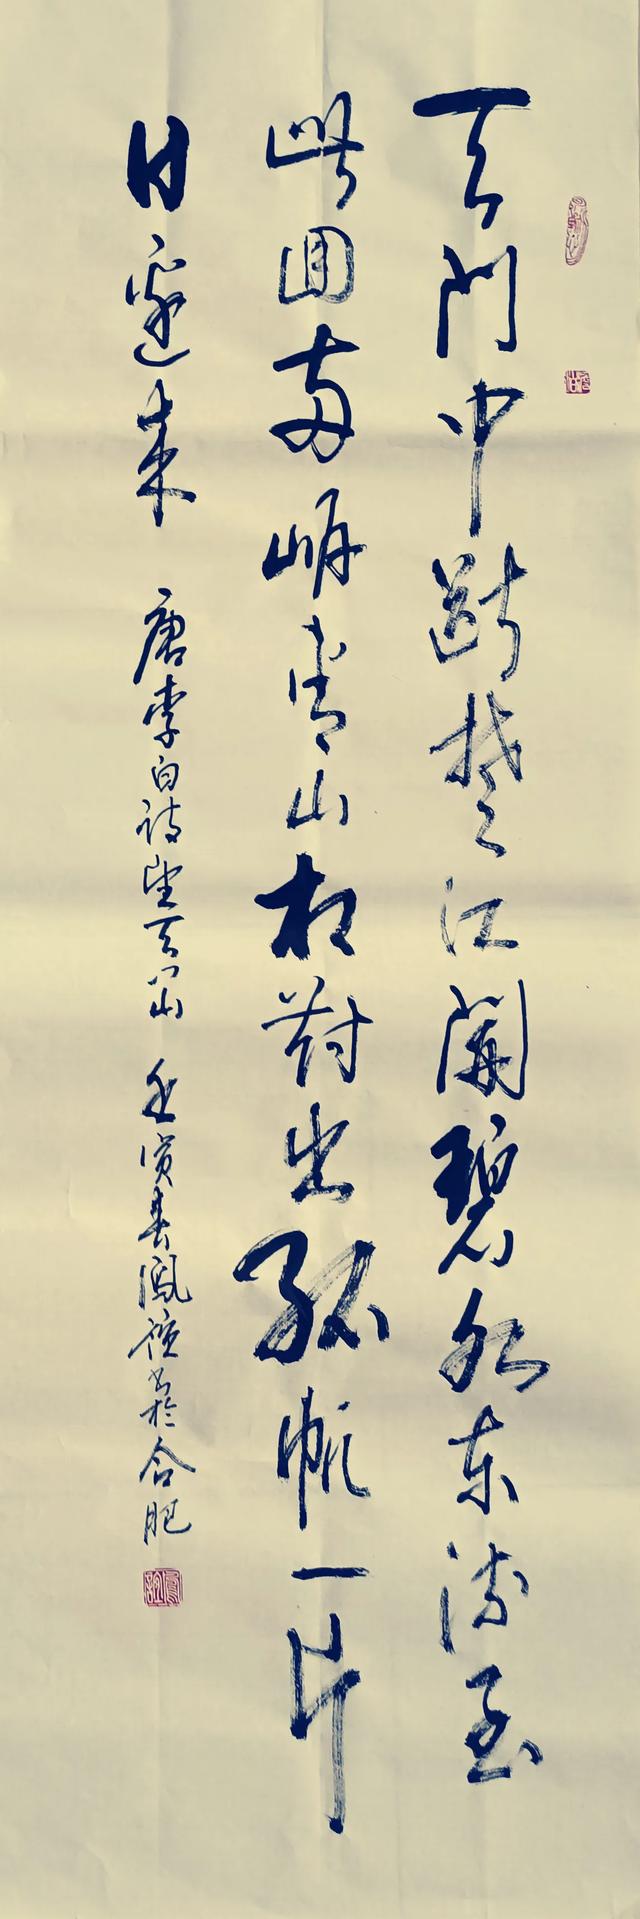 天門中斷楚江開碧水东流至
此回两岸青山相對出孤帆一片
日邊来 唐李白诗望天门山 壬寅春鳳书於合肥